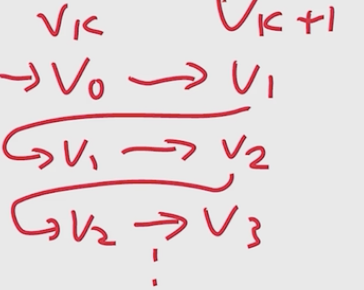 VK VK+1
→ V0 → V1
→ V1 → V2
→ V2 → V3